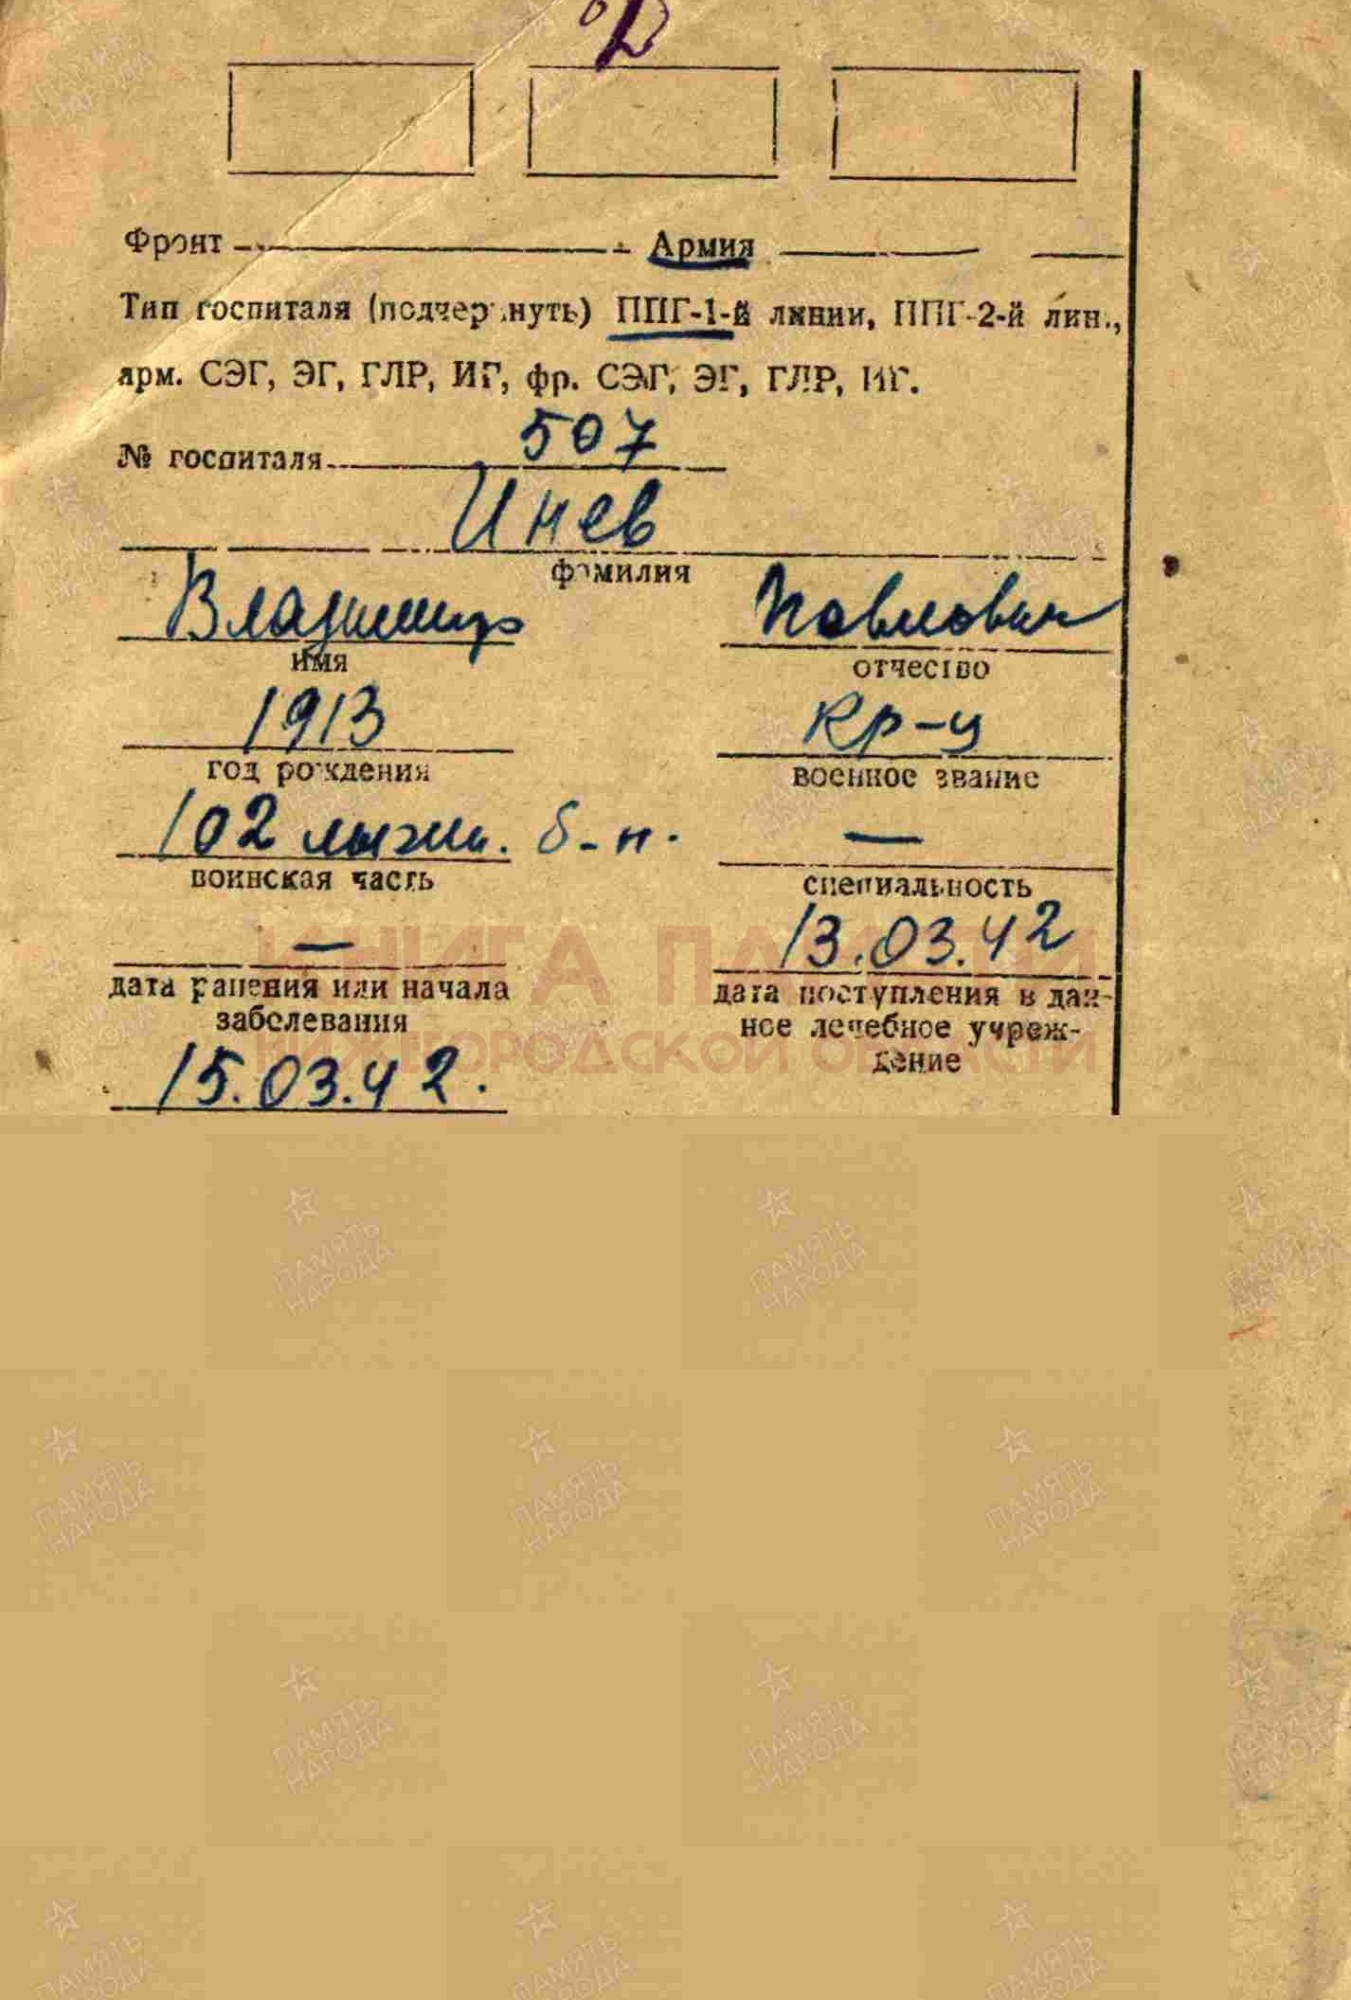 Фронт Армия
Тип госпиталя (подчеркнуть) ППГ-1-й линии, ППГ-2-й лин.,
арм. СЭГ, ЭГ, ГЛР, ИГ, фр. СЭГ, ЭГ, ГЛР, ИГ.
№ госпиталя 507
Инев
фамилия
Владимир Павлович
имя отчество
1913 кр-ц
год рождения военное звание
102 лыжн. б-н. —
воинская часть специальность
— 13.03.42
дата ранения или начала дата поступления в дан-
заболевания ное лечебное учреж-
дение
15.03.42.
КНИГА ПАМЯТИ
НИЖЕГОРОДСКОЙ ОБЛАСТИ
ПАМЯТЬ НАРОДА